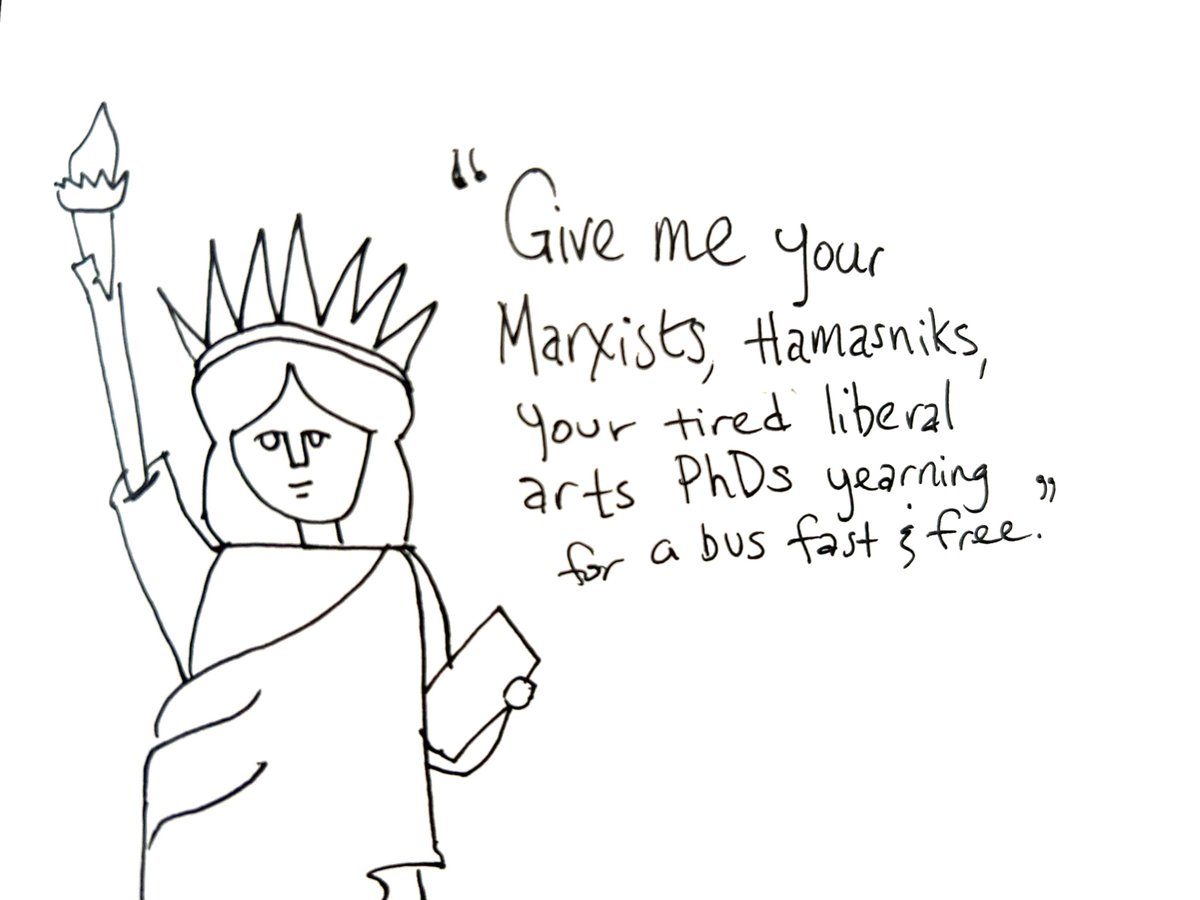 “Give me your
Marxists, Hamasniks,
your tired liberal
arts PhDs yearning
for a bus fast & free.”